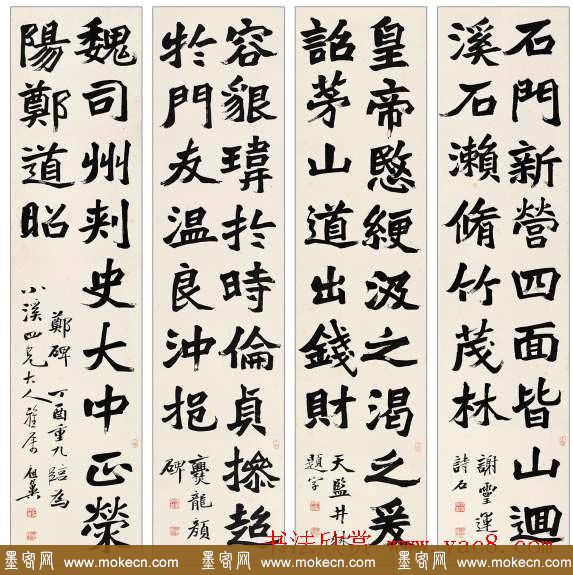 石門新營四面皆山迴
溪石瀨脩竹茂林
謝靈運
詩石
皇帝愍綆汲之渴乏爰
詔茅山道出錢財
天監井床
題字
容貌瑋於時倫貞操超
於門友温良沖挹
爨龍顏
碑
魏司州刾史大中正滎
陽鄭道昭
鄭碑 丁酉重九臨為
小溪四兄大人雅屬 祖翼
书法欣赏 www.yac8.com
墨客网 www.mokecn.com 墨客网 www.mokecn.com 墨客网 www.mokecn.com 墨客网 www.mokecn.com